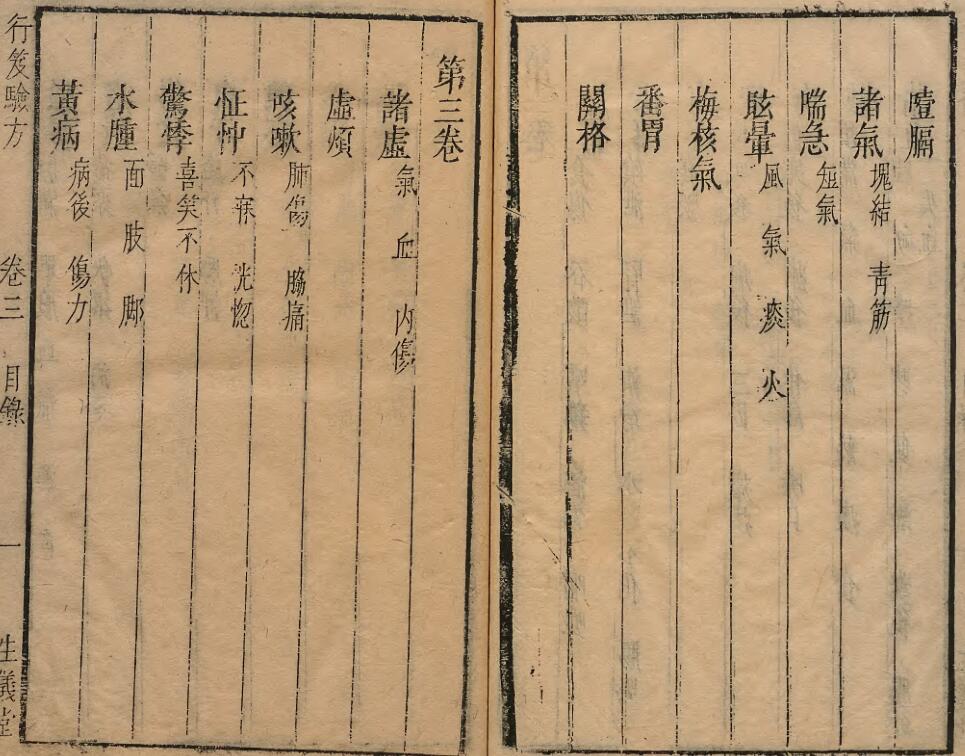 噎膈
諸氣 塊結 青筋
喘急 短氣
眩暈 風 氣 痰 火
梅核氣
番胃
關格
第三卷
諸虛 氣 血 內傷
虛煩
咳嗽 肺傷 脇痛
怔忡 不寐 恍惚
驚悸 喜笑不休
水腫 面 肢 脚
黃病 病後 傷力
行笈驗方 卷三 目錄 一 生議堂